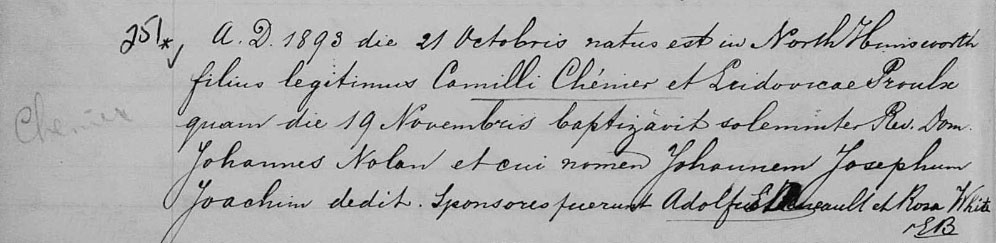 251*
A. D. 1893 die 21 Octobris natus est in North Himsworth
filius legitimus Camilli Chénier et Ludovicae Proulx
Chenier
quam die 19 Novembris baptizavit solemniter Rev. Dom.
Johannes Nolan et cui nomen Johannem Josephum
Joachim dedit. Sponsores fuerunt et Rosa White
EB